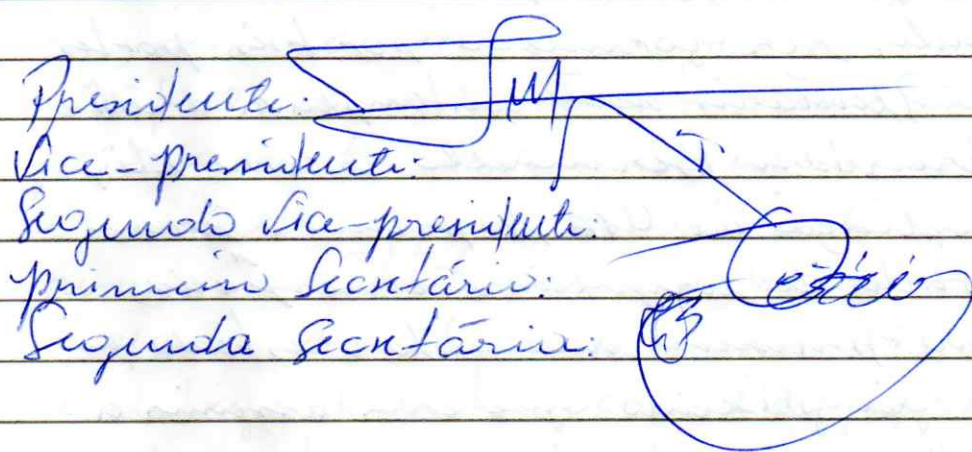 Presidente:
Vice-presidente:
Segundo Vice-presidente:
primeiro Secretário:
Segunda Secretária: